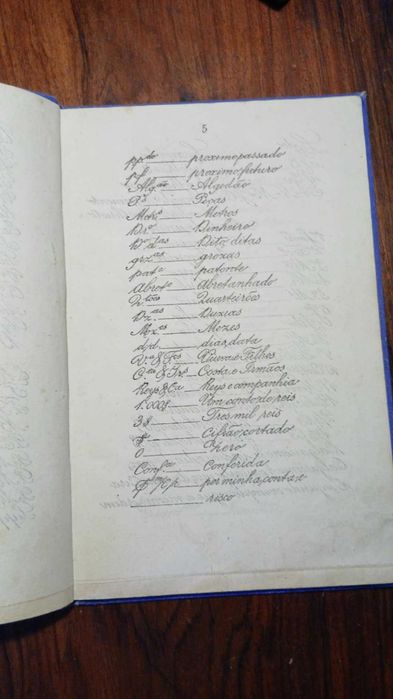 5
pp.do proximo passado
p.f. proximo futuro
Alg.ão Algodão
P.s Peças
Metr.s Metros
Dr.o Dinheiro
D.o d.tas Dito, ditas
grz.as grozas
pat.e patente
Abret.o Abretanhado
Q.tões Quarteirões
Dz.as Duzias
Mz.es Mezes
d/d. dias, data
V.a & F.os Viuva e Filhos
C.ta & Ir.s Costa e Irmãos
Reys & Ca Reys e companhia
1:000$ Um conto de reis
3$ Tres mil reis
$ Cifrão, cortado
0 Zero
Conf.da Conferida
por minha, conta, e
risco